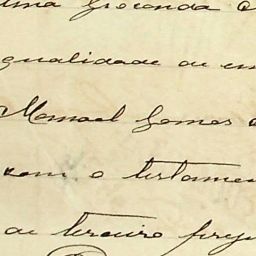 uma
qualidade de
Manoel Gomes
com o testamen
de terceiro